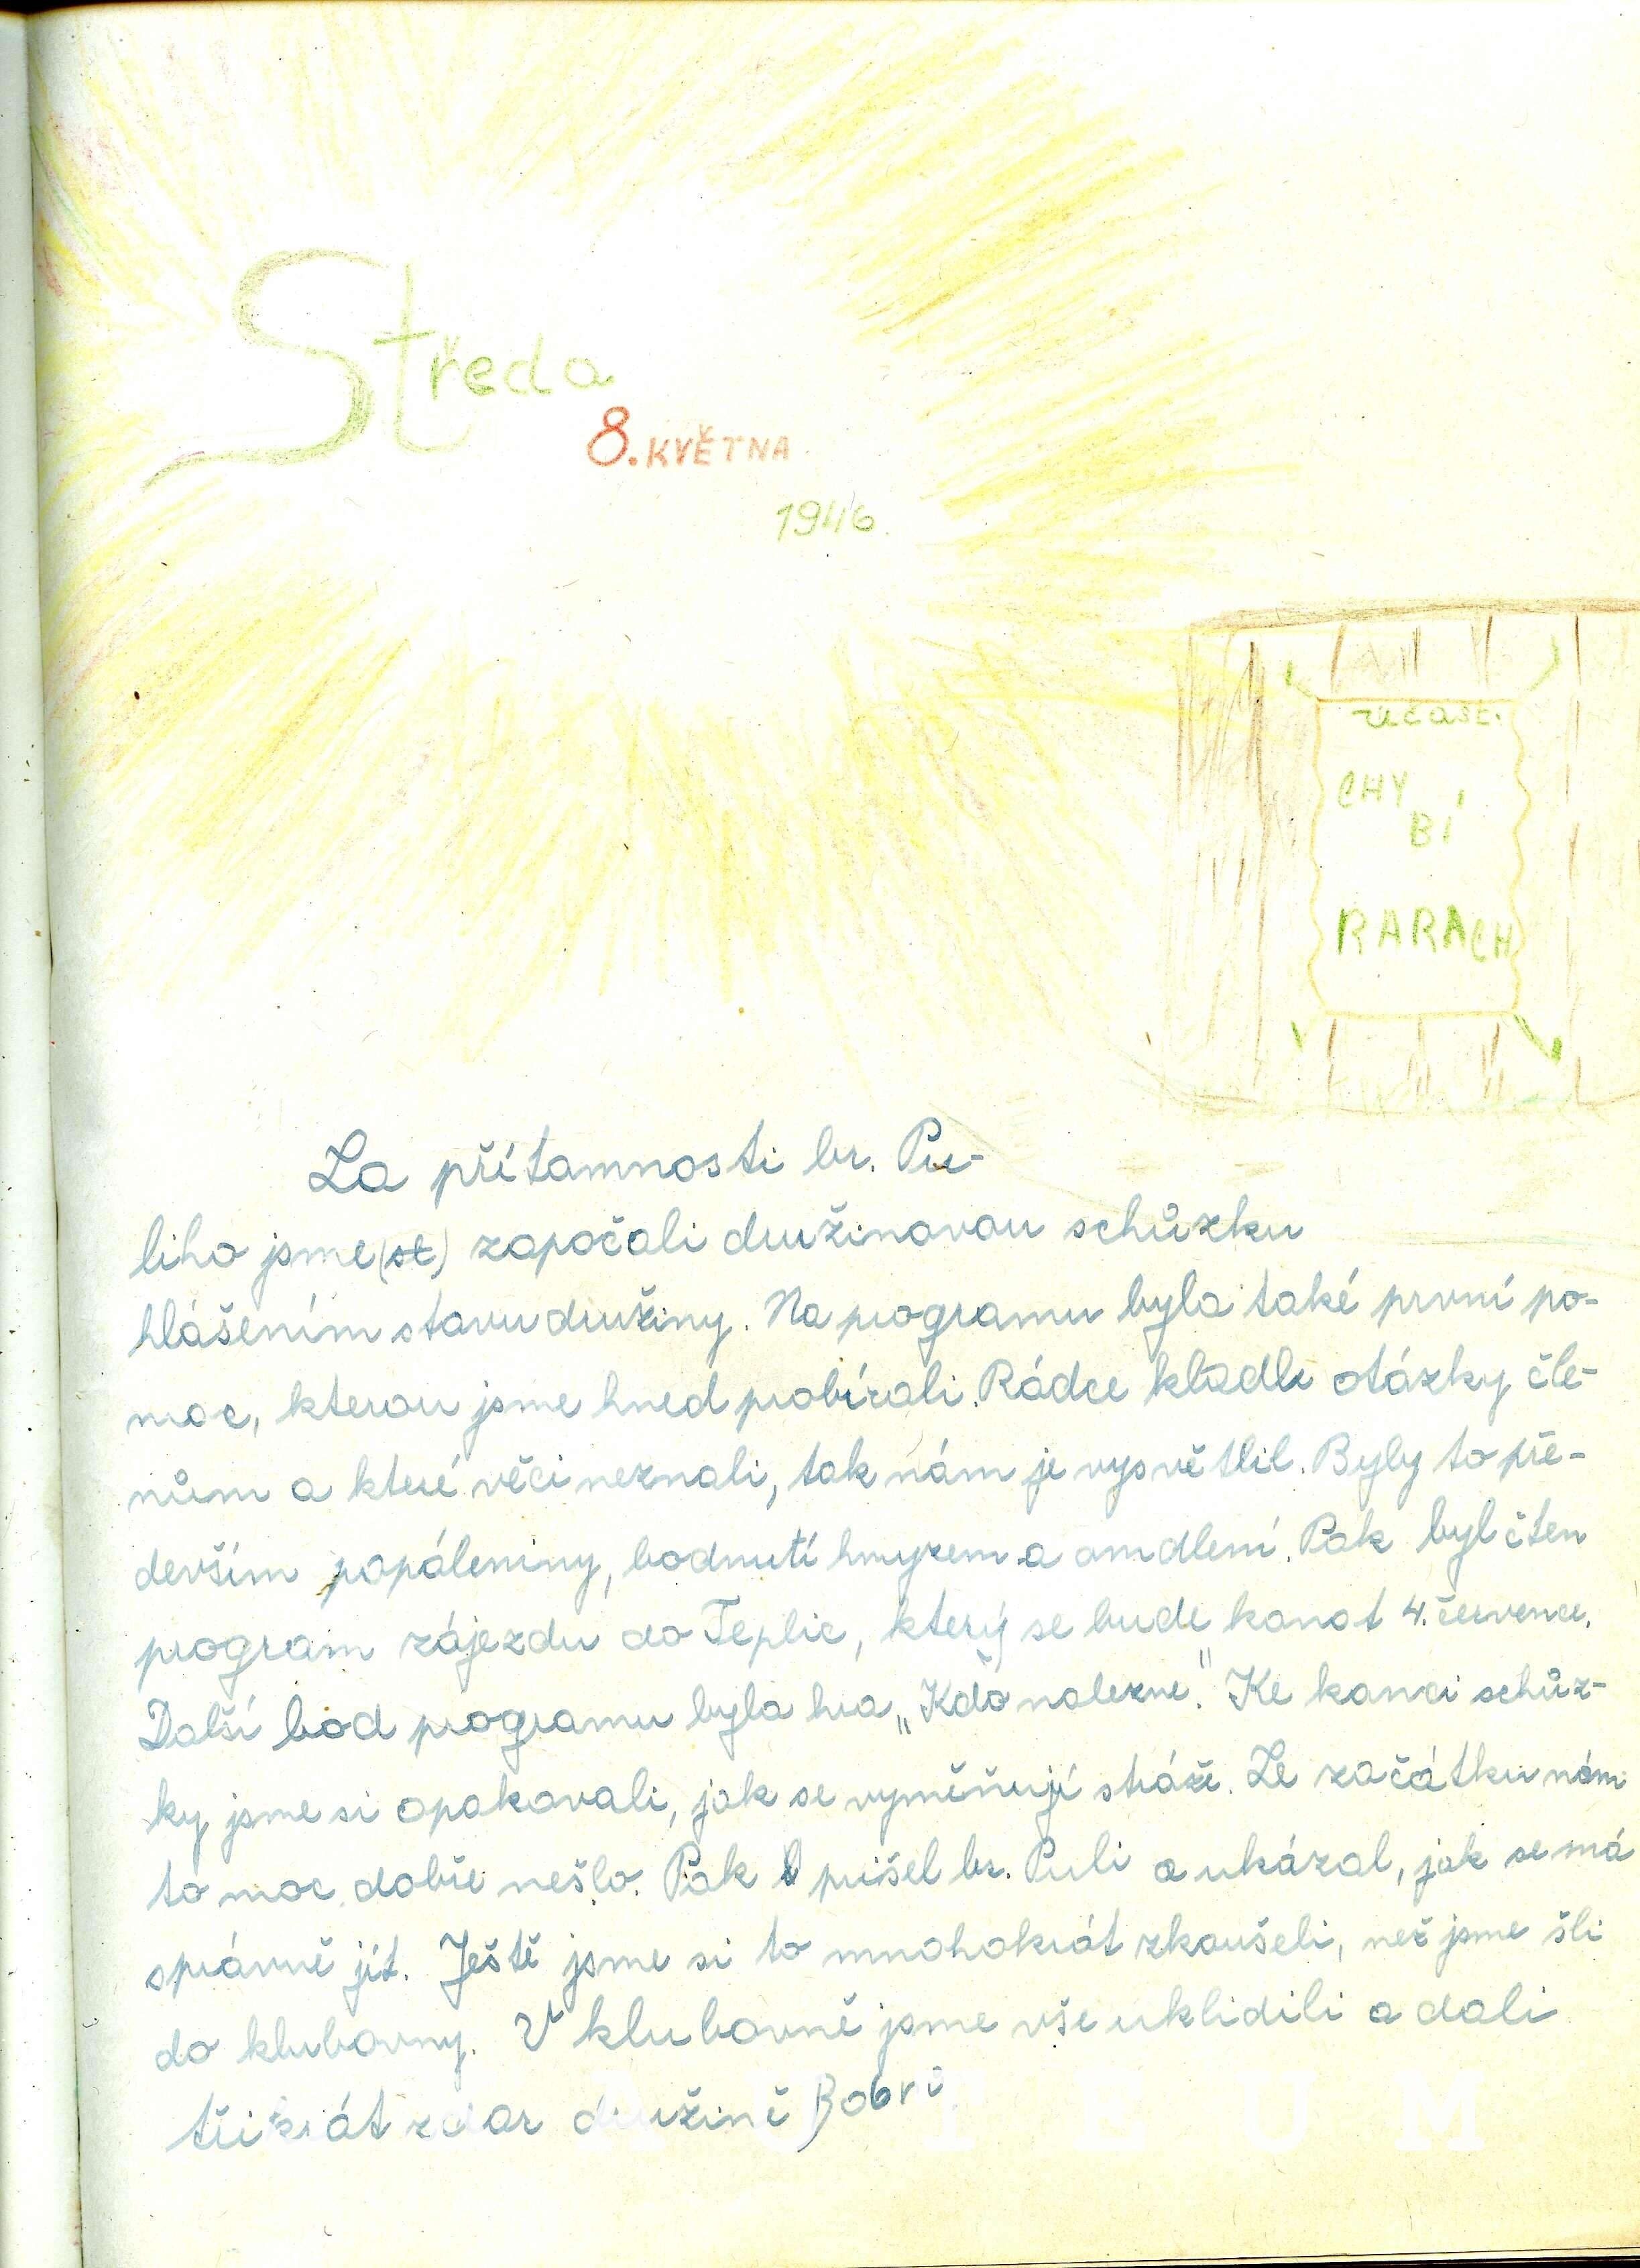 Středa
8. KVĚTNA
1946.
účast.
CHY
BÍ
RARACH
Za přítomnosti br. Pu-
liho jsme (st) započali družinovou schůzku
hlášením stavu družiny. Na programu byla také první po-
moc, kterou jsme hned probírali. Rádce kladl otázky čle-
nům a které věci neznali, tak nám je vysvětlil. Byly to pře-
devším popáleniny, bodnutí hmyzem a omdlení. Pak byl čten
program zájezdu do Teplic, který se bude konat 4. července.
Další bod programu byla hra „Kdo nalezne." Ke konci schůz-
ky jsme si opakovali, jak se vyměňují stráže. Ze začátku nám
to moc dobře nešlo. Pak přišel br. Puli a ukázal, jak se má
správně jít. Ještě jsme si to mnohokrát zkoušeli, než jsme šli
do klubovny. V klubovně jsme vše uklidili a dali
třikrát zdar družině Bobrů